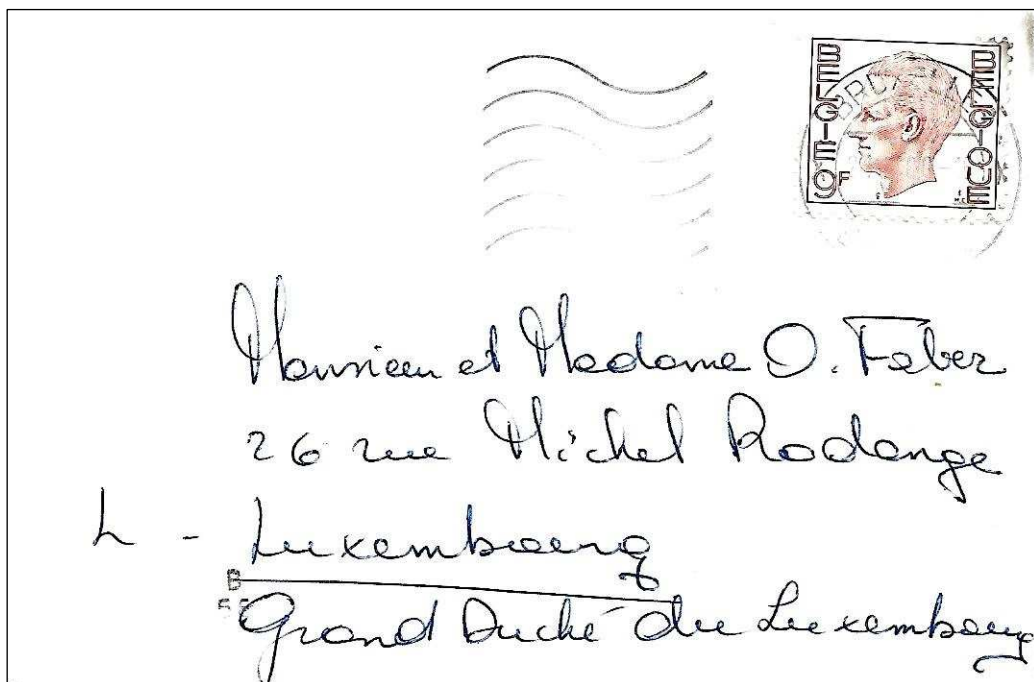 BELGIE 9F BELGIQUE
Monsieur et Madame O. Faber
26 rue Michel Rodange
L - Luxembourg
B
Grand Duché du Luxembourg